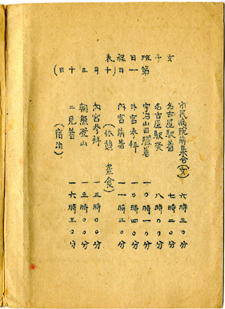 女子班日程表
第一日(十月三十日)
市民病院前集合 六時三〇分
名古屋駅着 七時二〇分
名古屋駅発 八時〇〇分
宇治山田駅着 一〇時一〇分
外宮参拝 一〇時四〇分
内宮前着 一一時三〇分
(休憩 昼食)
内宮参拝 時〇〇分
朝熊登山 時〇〇分
二見着 一六時三〇分
(宿泊)